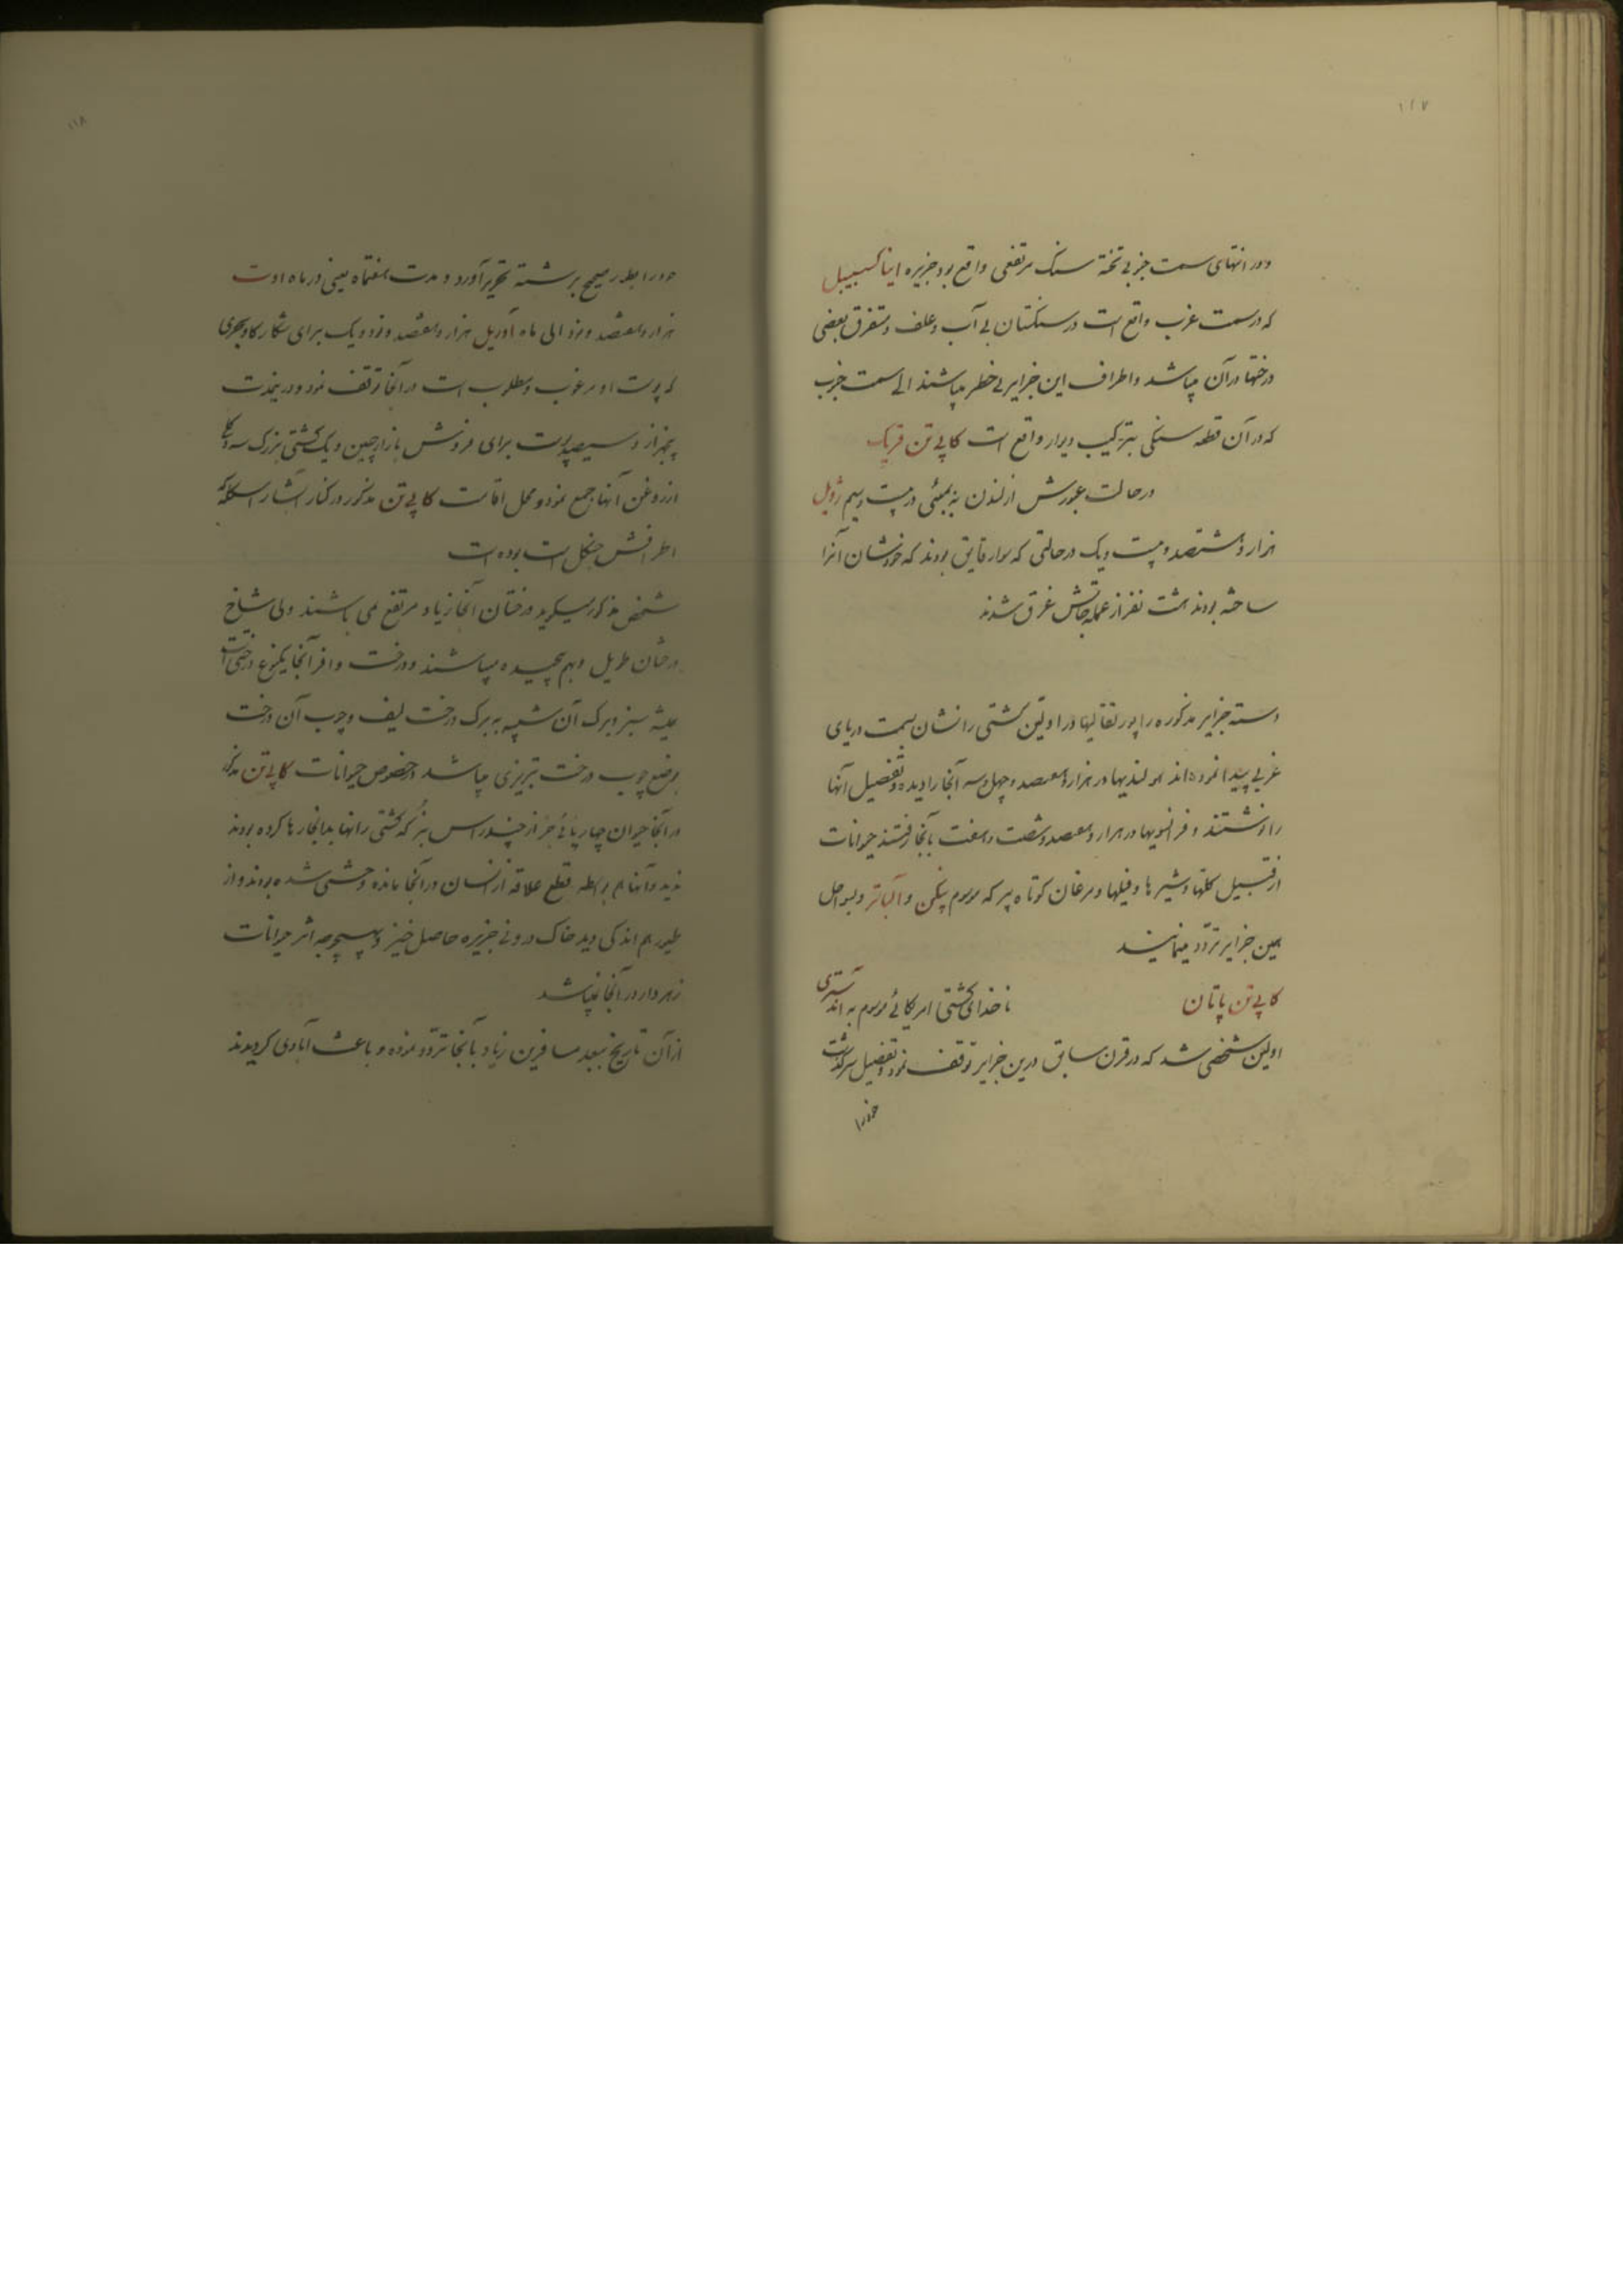 ۱۱۷
و در انتهای سمت جنوبی تخته سنک مرتفعی واقع بود جزیره ایناکسیبیل
که در سمت غرب واقع است در سنکستان بی آب و علف و متفرق بعضی
درختها در آن میباشد و اطراف این جزایر بی خطر میباشند الی سمت جنوب
که در آن قطعه سنکی بترکیب دیوار واقع است کاپی تن فریک
در حالت عبورش از لندن به بمبئی در بیست و سیم ژویل
هزار و هشتصد و بیست و یک در حالتی که سوار قایق بودند که خودشان آنرا
ساخته بودند هشت نفر از عمله جاتش غرق شدند
دسته جزایر مذکوره را پورتقالیها در اولین کشتی رانشان بسمت دریای
غربی پیدا نموده‌اند هولندیها در هزار و ششصد و چهل و سه آنجا را دیده و تفصیل آنها
را نوشتند و فرانسویها در هزار و هفتصد و شصت و هفت بآنجا رفتند حیوانات
از قبیل کلتها و شیرها و فیلها و مرغان کوتاه پر که موسوم پنکن و آلباتر و بسواحل
همین جزایر تردد مینمایند
کاپی تن پاتان ناخدای کشتی امریکائی موسوم به
اولین شخصی شد که در قرن سابق درین جزایر توقف نمود و تفصیل سرکذشت
خود را
۱۱۸
خود را بطور صحیح برشته تحریر آورد و مدت هفتماه یعنی در ماه اوت
هزار و هفتصد و نود الی ماه آوریل هزار و هفتصد و نود و یک برای شکار کاو بحری
که پوست او مرغوب و مطلوب است در آنجا توقف نمود و درینمدت
پنجهزار و سیصد پوست برای فروش بازار چین و یک کشتی بزرک
از روغن آنها جمع نمود و محل اقامت کاپی تن مذکور در کنار آبشار
اطرافش جنکل است بوده است
شخص مذکور میکوید درختان آنجا زیاد مرتفع می باشند ولی شاخ
درختان طویل و بهم پیچیده میباشند و درخت وافر آنجا یکنوع درختی است
همیشه سبز و برک آن شبیه به برک درخت لیف و چوب آن درخت
بوضع چوب درخت تبریزی میباشد در خصوص حیوانات کاپی تن مذکور
در آنجا حیوان چارپائی جز از چند راس بز که کشتی رانها بدانجا رها کرده بودند
ندید و آنها هم بواسطه قطع علاقه از انسان در آنجا مانده وحشی شده بودند و از
طیور هم اندکی دید خاک درونی جزیره حاصل خیز و بهیچوجه اثر حیوانات
زهر دار در آنجا نمیباشد
از آن تاریخ ببعد مسافرین زیاد بآنجا تردد نموده و باعث آبادی کردیدند